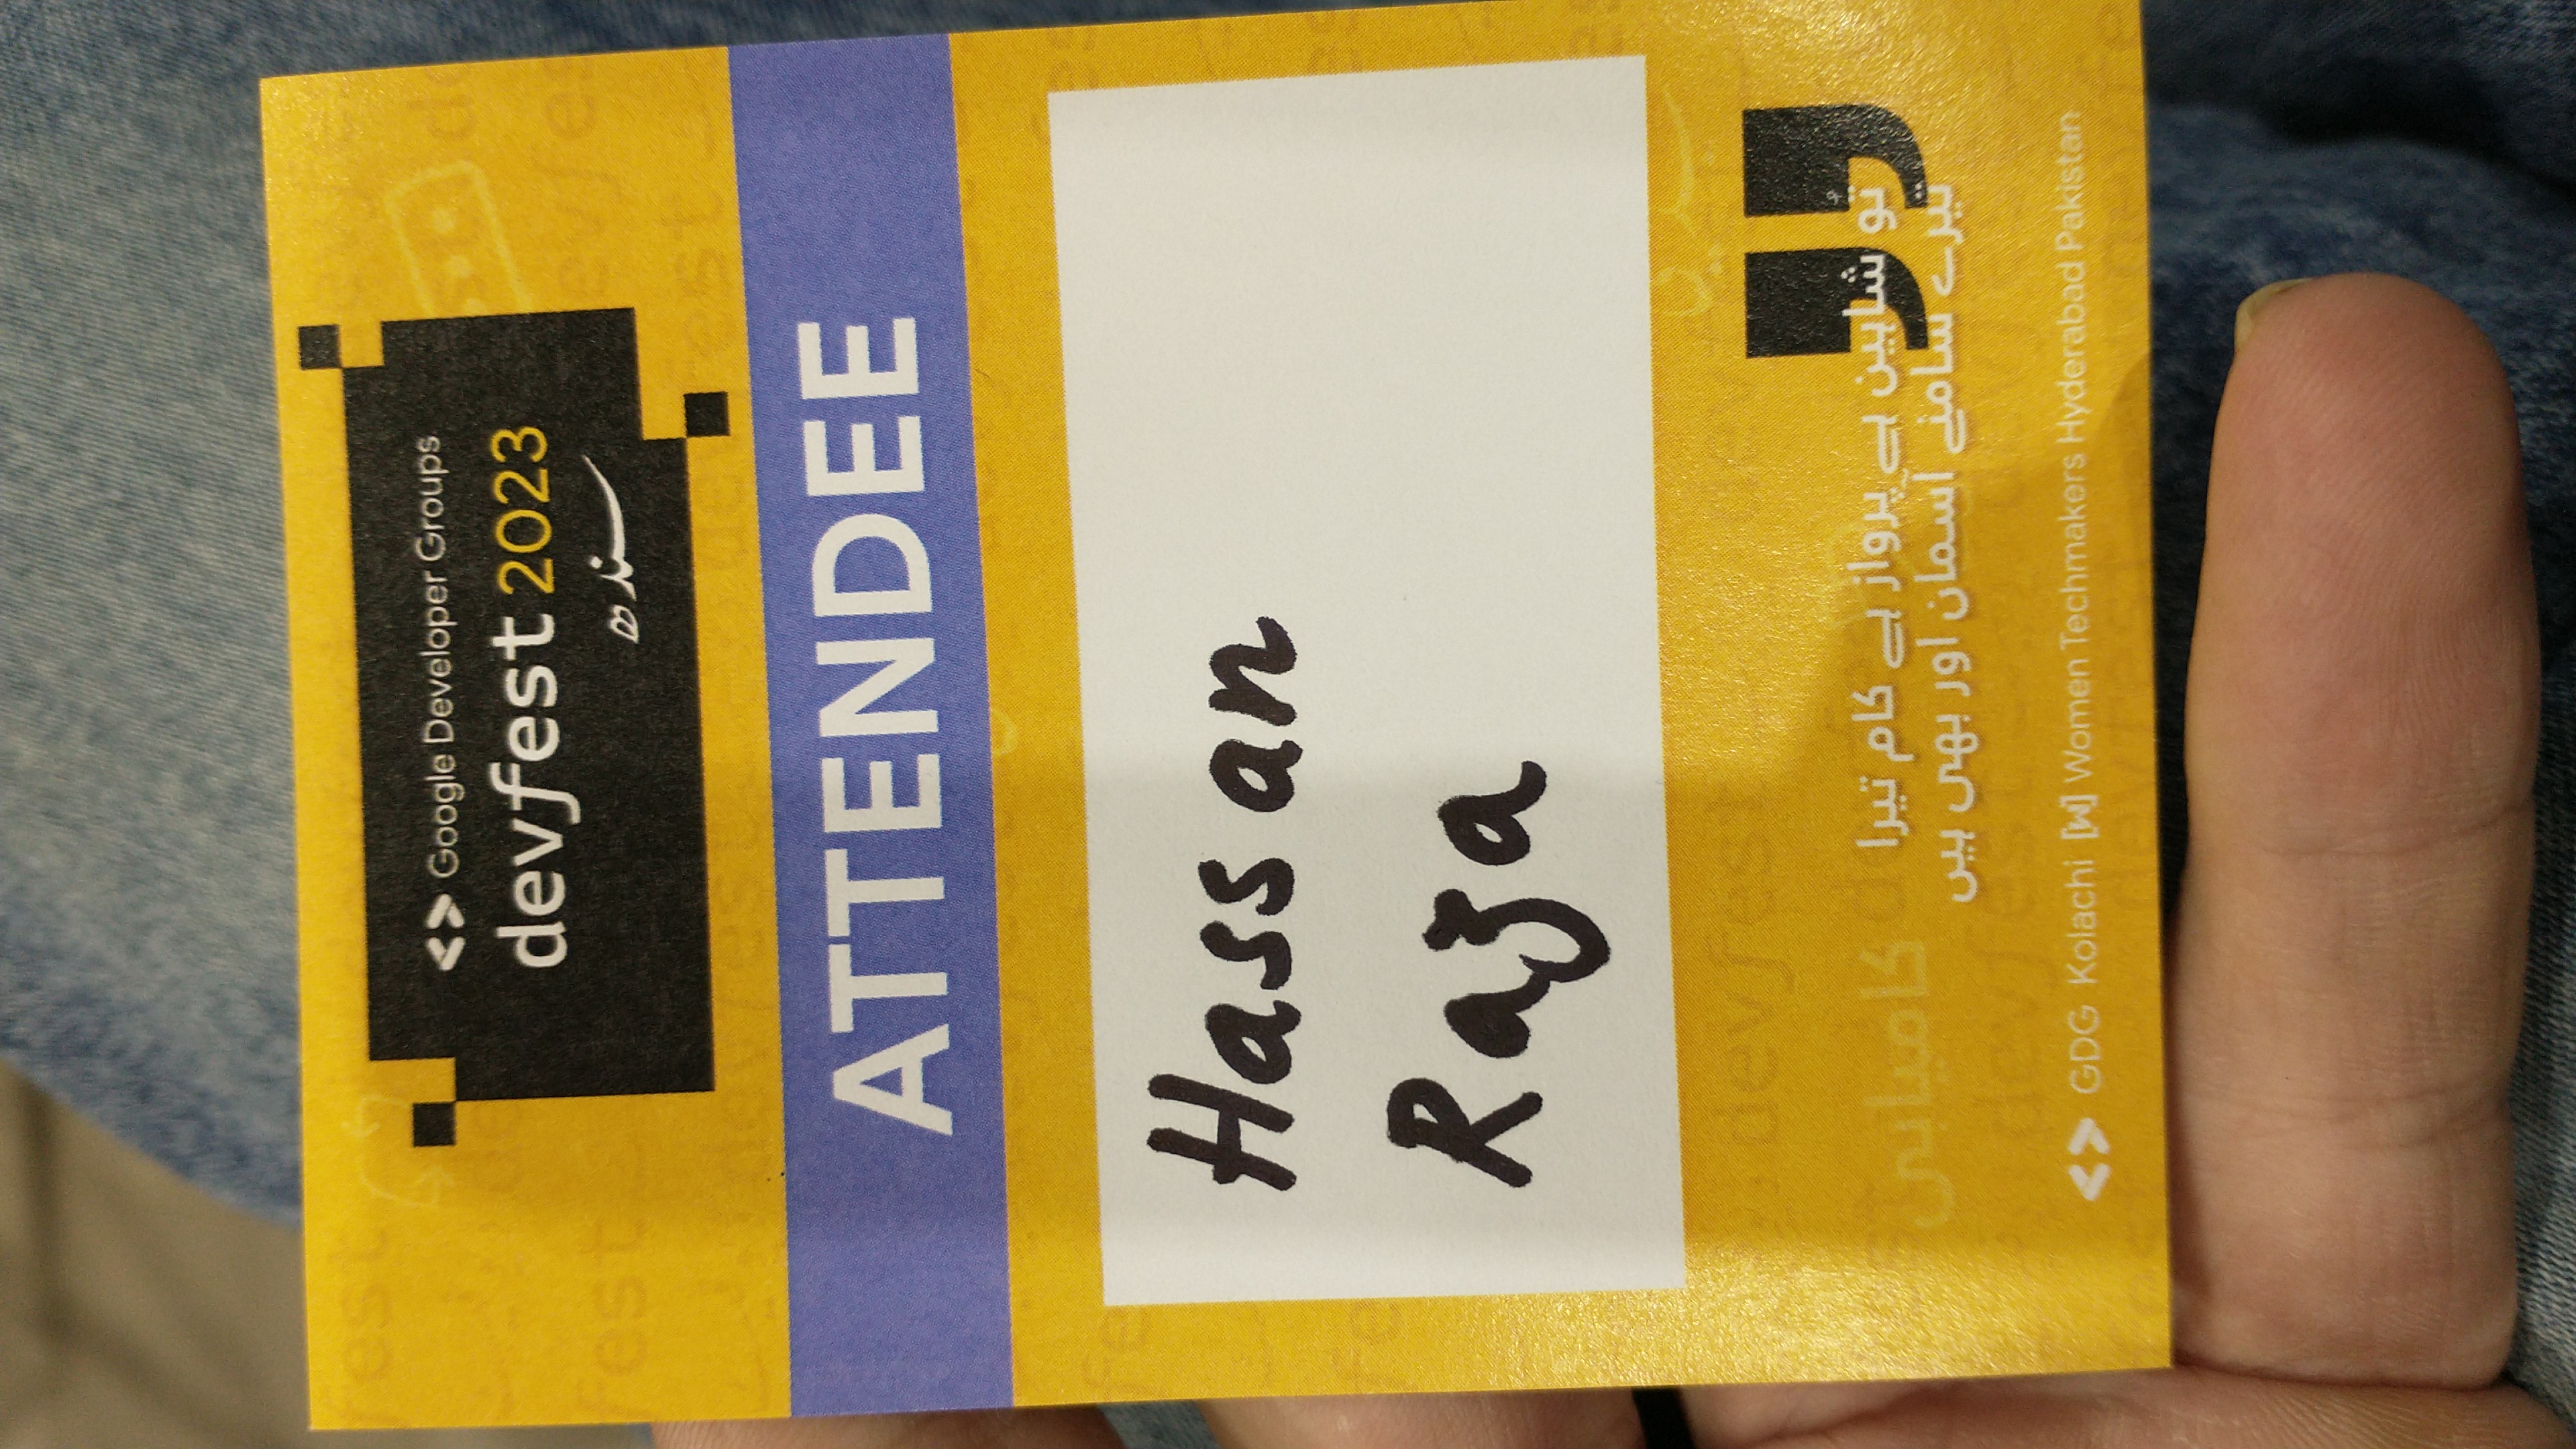 <> Google Developer Groups
devfest 2023
سندھ
ATTENDEE
Hassan
Raza
تُو شاہین ہے پرواز ہے کام تیرا
تیرے سامنے آسمان اور بھی ہیں
کامیابی
<> GDG Kolachi [W] Women Techmakers Hyderabad Pakistan